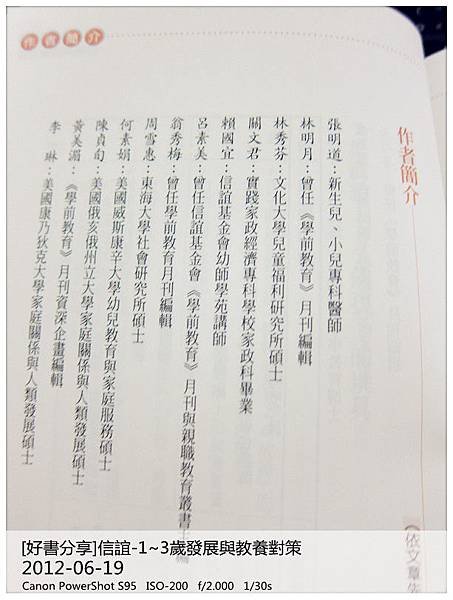 作者簡介
作者簡介
張明道：新生兒、小兒專科醫師
林明月：曾任《學前教育》月刊編輯
林秀芬：文化大學兒童福利研究所碩士
關文君：實踐家政經濟專科學校家政科畢業
賴國宜：信誼基金會幼師學苑講師
呂素美：曾任信誼基金會《學前教育》月刊與親職教育叢書主編
翁秀梅：曾任學前教育月刊編輯
周雪惠：東海大學社會研究所碩士
何素娟：美國威斯康辛大學幼兒教育與家庭服務碩士
陳貞旬：美國俄亥俄州立大學家庭關係與人類發展碩士
黃美湄：《學前教育》月刊資深企畫編輯
李　琳：美國康乃狄克大學家庭關係與人類發展碩士
（依文章先
[好書分享]信誼-1~3歲發展與教養對策
2012-06-19
Canon PowerShot S95 ISO-200 f/2.000 1/30s